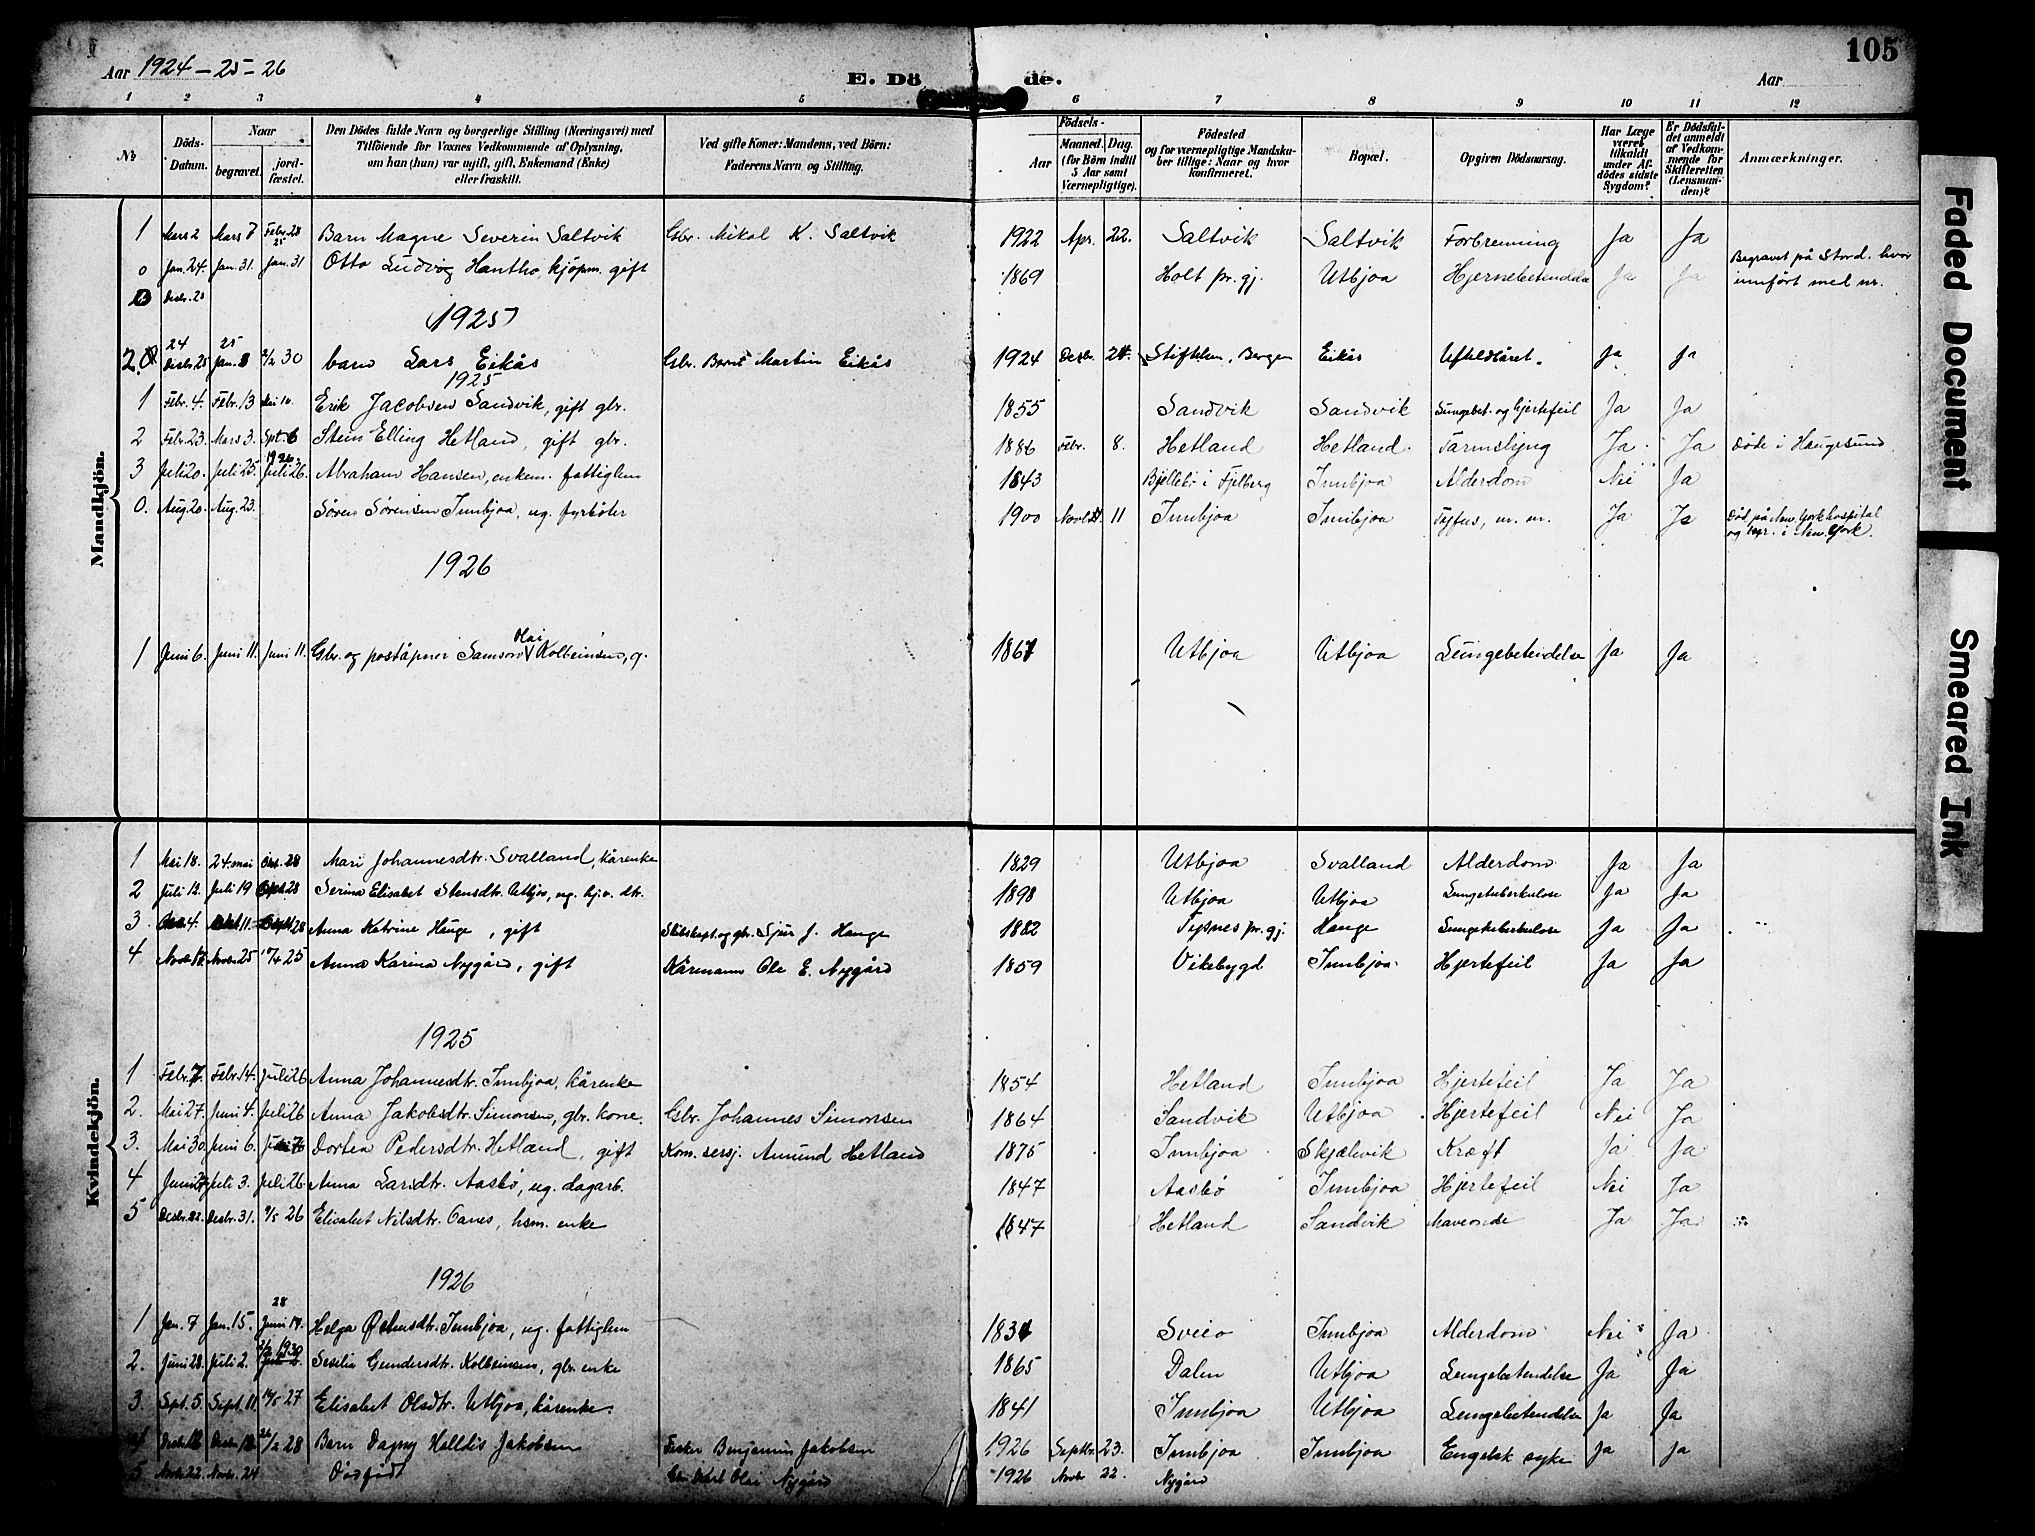 105
Aar 1924-25-26 E. Dö de. Aar
1 2 3 4 5 6 7 8 9 10 11 12
No Döds-Datum. Naar begravet. jord-fæstet. Den Dödes fulde Navn og borgerlige Stilling (Næringsvei) med Tilföiende for Voxnes Vedkommende af Oplysning, om han (hun) var ugift, gift, Enkemand (Enke) eller fraskilt. Ved gifte Koner: Mandens, ved Börn: Faderens Navn og Stilling. Födsels- Aar Maaned. Dag. (for Börn indtil 5 Aar samt Værnepligtige). Födested og for værnepligtige Mandskaber tillige: Naar og hvor konfirmeret. Bopæl. Opgiven Dödsaarsag. Har Læge været tilkaldt under Afdödes sidste Sygdom? Er Dödsfaldet anmeldt af Vedkommende for Skifteretten (Lensmanden)? Anmærkninger.
Mandkjön.
1 Mars 2 Mars 7 Febr. 28 25 Barn Magne Severin Saltvik Gbr. Mikal K. Saltvik 1922 Apr. 22. Saltvik Saltvik Forbrenning Ja Ja
0 Jan. 24. Jan. 31. Jan. 31 Otto Ludvig Hantho, kjöpm. gift 1869 Holt pr. gj. Utbjoa Hjernebetendelse Ja Ja Begravet på Stord. hvor innfört med nr.
Desbr. 20
1925
2. 24 Desbr. 25 25 Jan. 8 2/2 30 barn Lars Eikås Gbr. Bernt Martin Eikås 1924 Desbr. 24. Stiftelsen, Bergen Eikås Ufuldbåret. Ja Ja
1925
1 Febr. 4. Febr. 13 Erik Jacobsen Sandvik, gift gbr. 1855 Sandvik Sandvik Lungebet. og hjertefeil Ja Ja
2 Febr. 23. Mars 3. Spt. 6 Stein Elling Hetland, gift gbr. 1886 Febr. 8. Hetland Hetland. Tarmslyng Ja Ja Döde i Haugesund
3 Juli 20. Juli 25. 1926 Juli 26. Abraham Hansen, enkem. fattiglem 1843 Bjellebö i Fjelberg Innbjoa Alderdom Nei Ja
0. Aug. 20. Aug. 23. Sören Sörensen Innbjoa, ug. fyrböter 1900 11 Innbjoa Innbjoa Tyfus, m. m. Ja Ja Död på New York hospital og begr. i New York.
1926
1 Juni 6. Juni 11. Juni 11. Gbr. og poståpner Samson Olai Kolbeinsen, g. 1867 Utbjoa Utbjoa Lungebetendelse Ja Ja
Kvindekjön.
1 Mai 18. 24. mai 28 Mari Johannesdtr. Svalland, kårenke 1829 Utbjoa Svalland Alderdom Ja Ja
2 Juli 12. Juli 19 Sept. 28 Serina Elisabet Stensdtr. Utbjoa, ug. dtr. 1898 Utbjoa Utbjoa Lungetuberkulose Ja Ja
3 4. 11 28 Anna Katrine Hauge, gift Skibskapt. og gbr. Sjur J. Hauge 1882 Tysnes pr. gj. Hauge Lungetuberkulose Ja Ja
4 Novbr. 17. Novbr. 25 25 Anna Karina Nygård, gift Kårmann Ole E. Nygård 1859 Vikebygd Innbjoa Hjertefeil Ja Ja
1925
1 Febr. 7. Febr. 14. Juli 26 Anna Johannesdtr. Innbjoa, kårenke 1854 Hetland Innbjoa Hjertefeil Ja Ja
2. Mai 27. Juni 4. Juli 26 Anna Jakobsdtr. Simonsen, gbr. kone. Gbr. Johannes Simonsen 1864 Sandvik Utbjoa Hjertefeil Nei Ja
3. Mai 30. Juni 6. Dortea Pedersdtr. Hetland, gift Kom. sersj. Amund Hetland 1875 Innbjoa Skjælevik Kræft Ja Ja
4 Juni 27. Juli 3. Juli 26 Anna Larsdtr. Aasbö, ug. dagarb. 1847 Aasbö Innbjoa Hjertefeil Nei Ja
5 Desbr. 22. Desbr. 31. 9/5 26 Elisabet Nilsdtr. Oanes, hsm. enke 1847 Hetland Sandvik Maveonde Ja Ja
1926
1 Jan. 7 Jan. 15. 28 Juni 14. Helga Östensdtr. Innbjoa, ug. fattiglem 1831 Sveio Innbjoa Alderdom Nei Ja
2. Juni 28. Juli 2. 1930 Seselia Gundersdtr. Kolbeinsen, gbr. enke 1865 Dalen Utbjoa Lungebetendelse Ja Ja
3. Sept. 5. Sept. 11. 27 Elisabet Olsdtr. Utbjoa, kårenke. 1841 Innbjoa Utbjoa Lungebetendelse Ja Ja
4 Desbr. Desbr. 26/2 28 Barn Dagny Halldis Jakobsen Fisker Benjamin Jakobsen 1926 Septbr. 23. Innbjoa Innbjoa Engelsk syke Ja Ja
5 Novbr. 22. Novbr. 24 Dödfödt Gbr. Karl Olai Nygård 1926 Novbr 22. Nygård
Faded Document
Smeared Ink